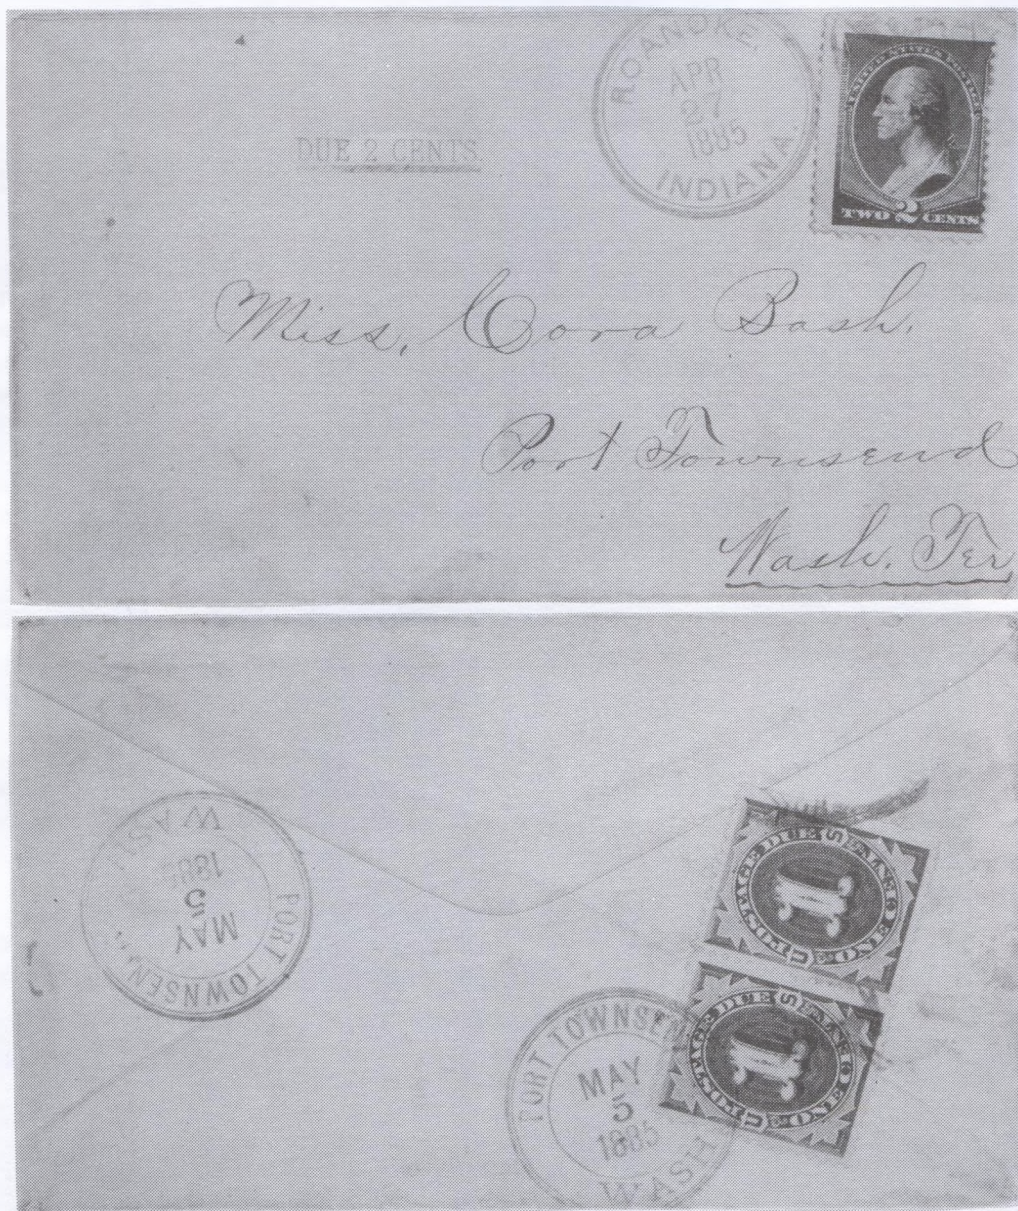 ROANOKE.
APR
27
1885
INDIANA.
UNITED STATES POSTAGE
TWO 2 CENTS
DUE 2 CENTS.
Miss, Cora Bash.
Port Townsend
Wash. Ter
PORT TOWNSEN
MAY
5
1885
WASH
POSTAGE DUE
1
ONE CENT
U S
POSTAGE DUE
1
ONE CENT
U S
PORT TOWNSEN
MAY
5
1885
WASH